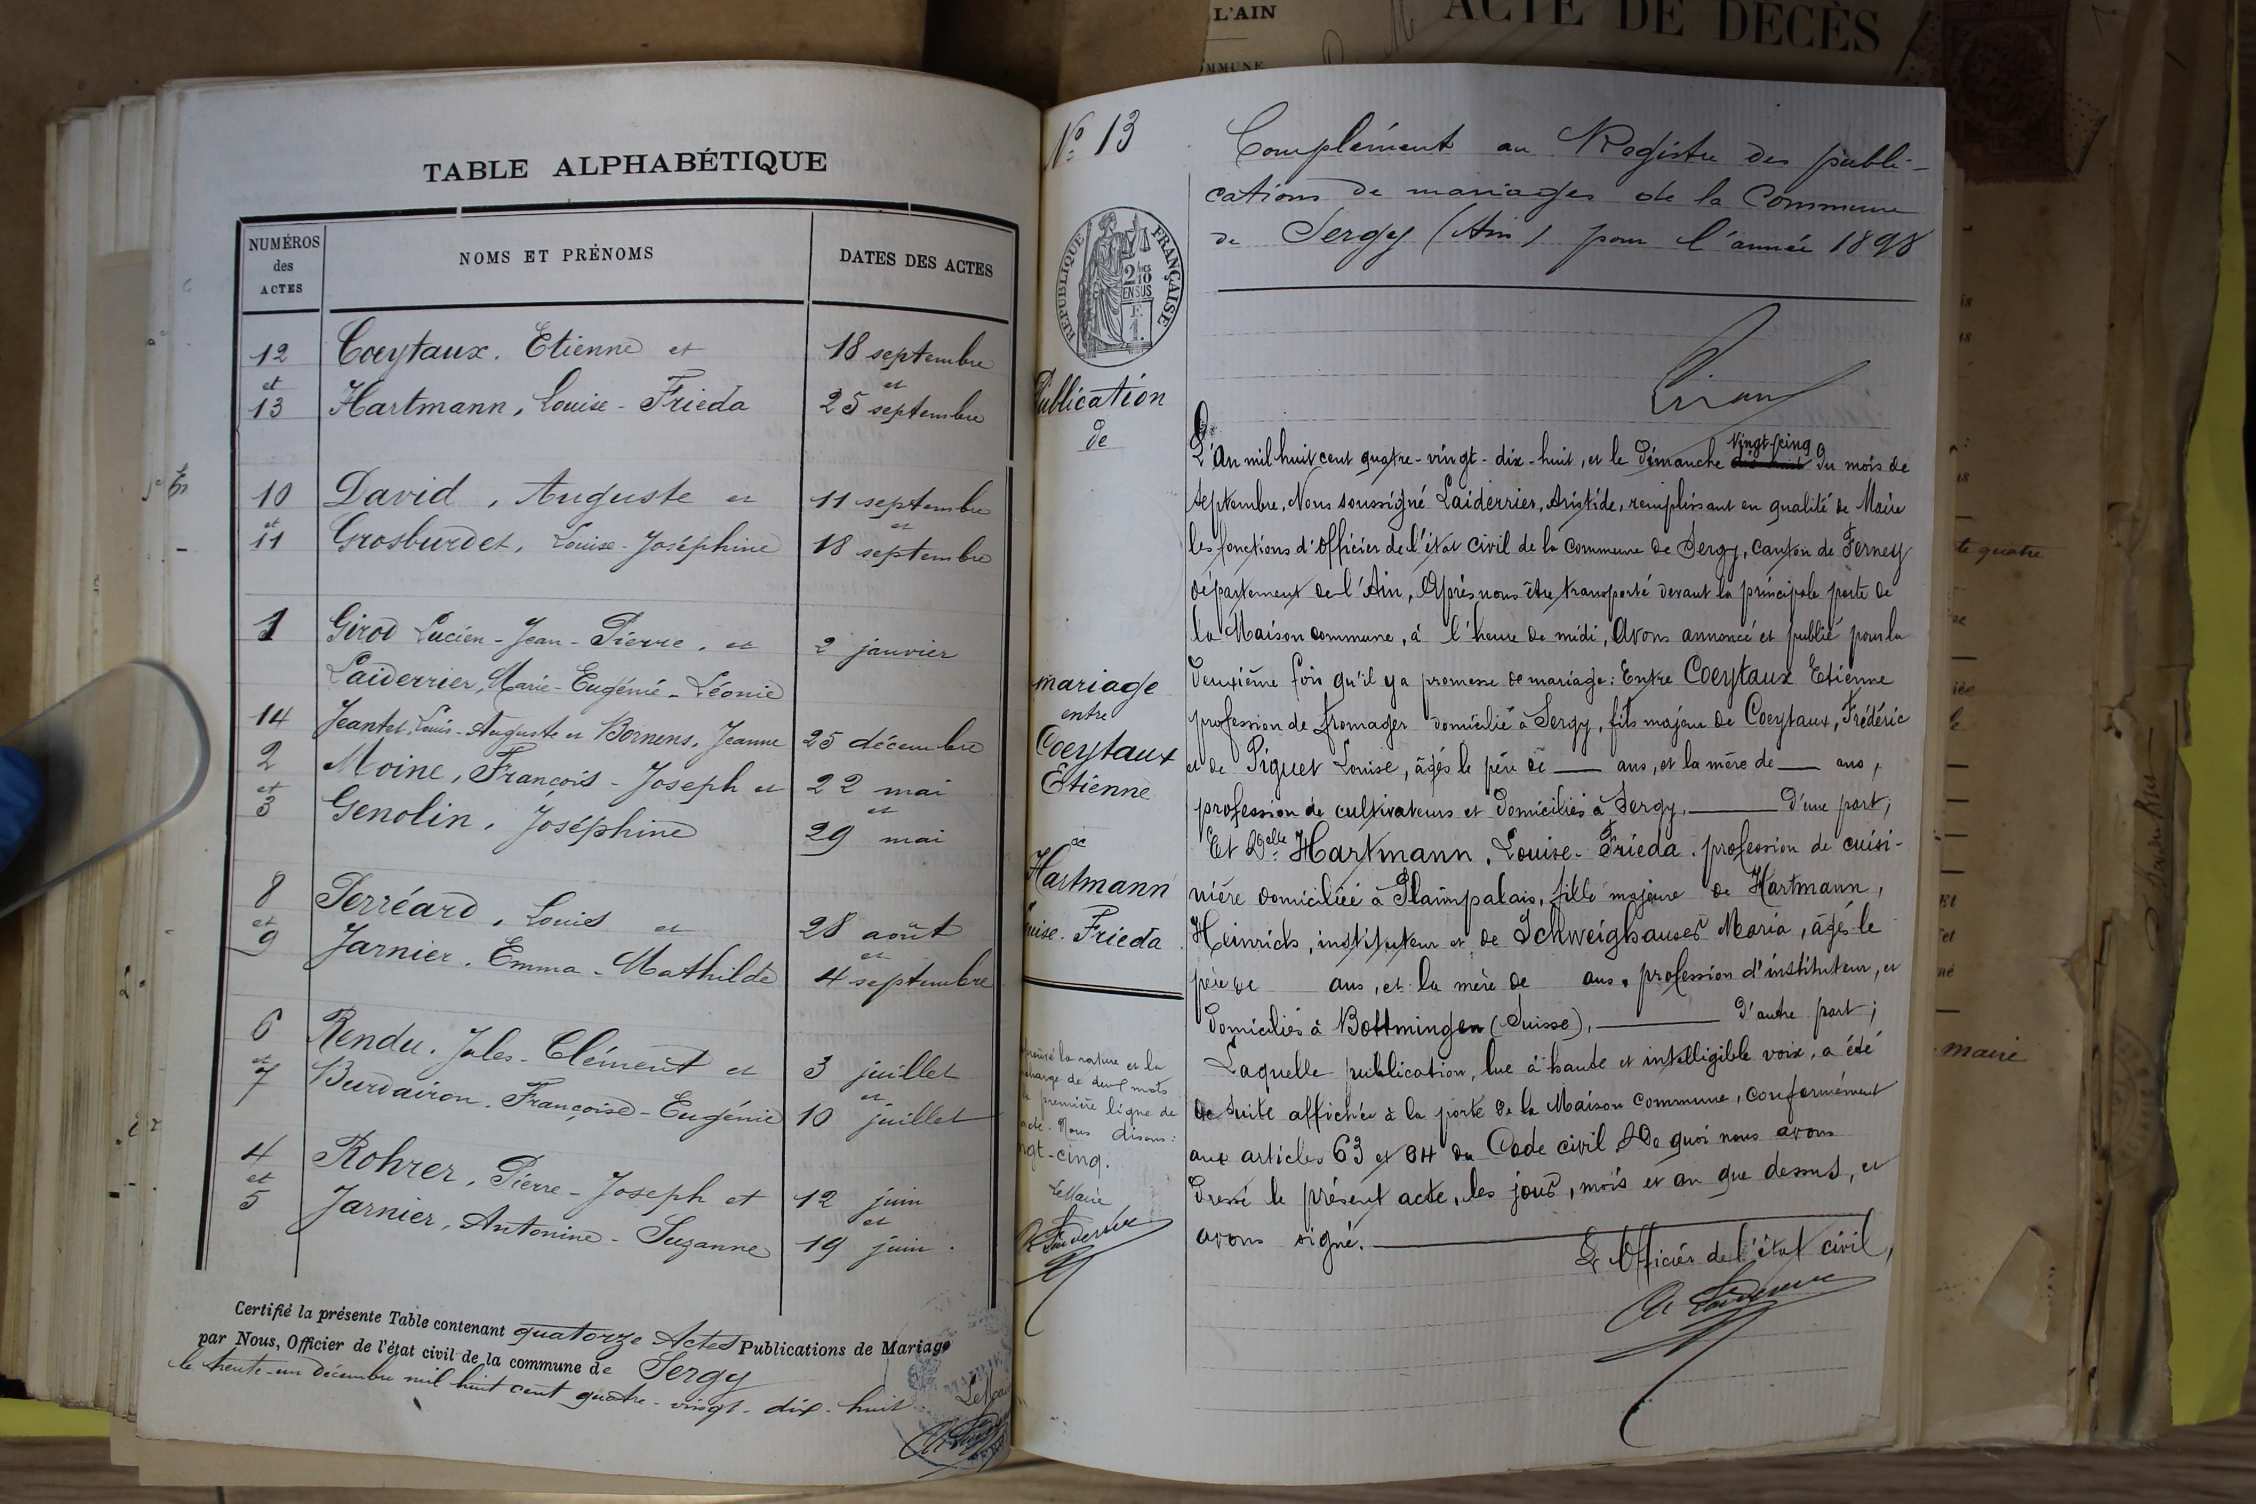 L'AIN
ACTE DE DÉCÈS
TABLE ALPHABÉTIQUE
NUMÉROS des ACTES
NOMS ET PRÉNOMS
DATES DES ACTES
12 Coeytaux, Etienne et 18 septembre
et et
13 Hartmann, Louise-Frieda 25 septembre
10 David, Auguste et 11 septembre
et et
11 Grosburdet, Louise-Joséphine 18 septembre
1 Girod Lucien-Jean-Pierre, et 2 janvier
Laiderrier, Marie-Eugénie-Léonie
14 Jeantet, Louis-Auguste et Bornens, Jeanne 25 décembre
2 Moine, François-Joseph et 22 mai
et et
3 Genolin, Joséphine 29 mai
8 Perréard, Louis et 28 août
et et
9 Jarnier, Emma-Mathilde 4 septembre
6 Rendu, Jules-Clément et 3 juillet
et et
7 Burdairon, Françoise-Eugénie 10 juillet
4 Rohrer, Pierre-Joseph et 12 juin
et et
5 Jarnier, Antonine-Suzanne 19 juin.
Certifié la présente Table contenant quatorze Actes Publications de Mariage
par Nous, Officier de l'état civil de la commune de Sergy
le trente-un décembre mil huit cent quatre-vingt-dix-huit
N° 13
RÉPUBLIQUE FRANÇAISE
2/10 EN SUS
F. 1.
Publication
de
mariage
entre
Coeytaux
Etienne
et
Hartmann
Frieda
la rature et la
de deux mots
première ligne de
Nous disons:
-cinq.
Le Maire
Complément au Registre des publi-
cations de mariages de la Commune
de Sergy (Ain) pour l'année 1898
L'An mil huit cent quatre-vingt-dix-huit, et le dimanche vingt-cinq du mois de
septembre, Nous soussigné Laiderrier, Aristide, remplissant en qualité de Maire
les fonctions d'officier de l'état civil de la commune de Sergy, canton de Ferney
département de l'Ain, Après nous être transporté devant la principale porte de
la Maison commune, à l'heure de midi, Avons annoncé et publié pour la
deuxième fois qu'il y a promesse de mariage: Entre Coeytaux Etienne
profession de fromager domicilié à Sergy, fils majeur de Coeytaux, Frédéric
et de Piguet Louise, âgés le père de — ans, et la mère de — ans,
profession de cultivateurs et domiciliés à Sergy, — d'une part;
Et Delle Hartmann, Louise-Frieda, profession de cuisi-
nière domiciliée à Plainpalais, fille majeure de Hartmann,
Heinrich, instituteur et de Schweighauser Maria, âgés le
père de ans, et la mère de ans, profession d'instituteur, et
domiciliés à Bottmingen (Suisse), — d'autre part;
Laquelle publication, lue à haute et intelligible voix, a été
de suite affichée à la porte de la Maison commune, conformément
aux articles 63 et 64 du Code civil De quoi nous avons
dressé le présent acte, les jour, mois et an que dessus, et
avons signé. —
L'Officier de l'état civil,
quatre
maire